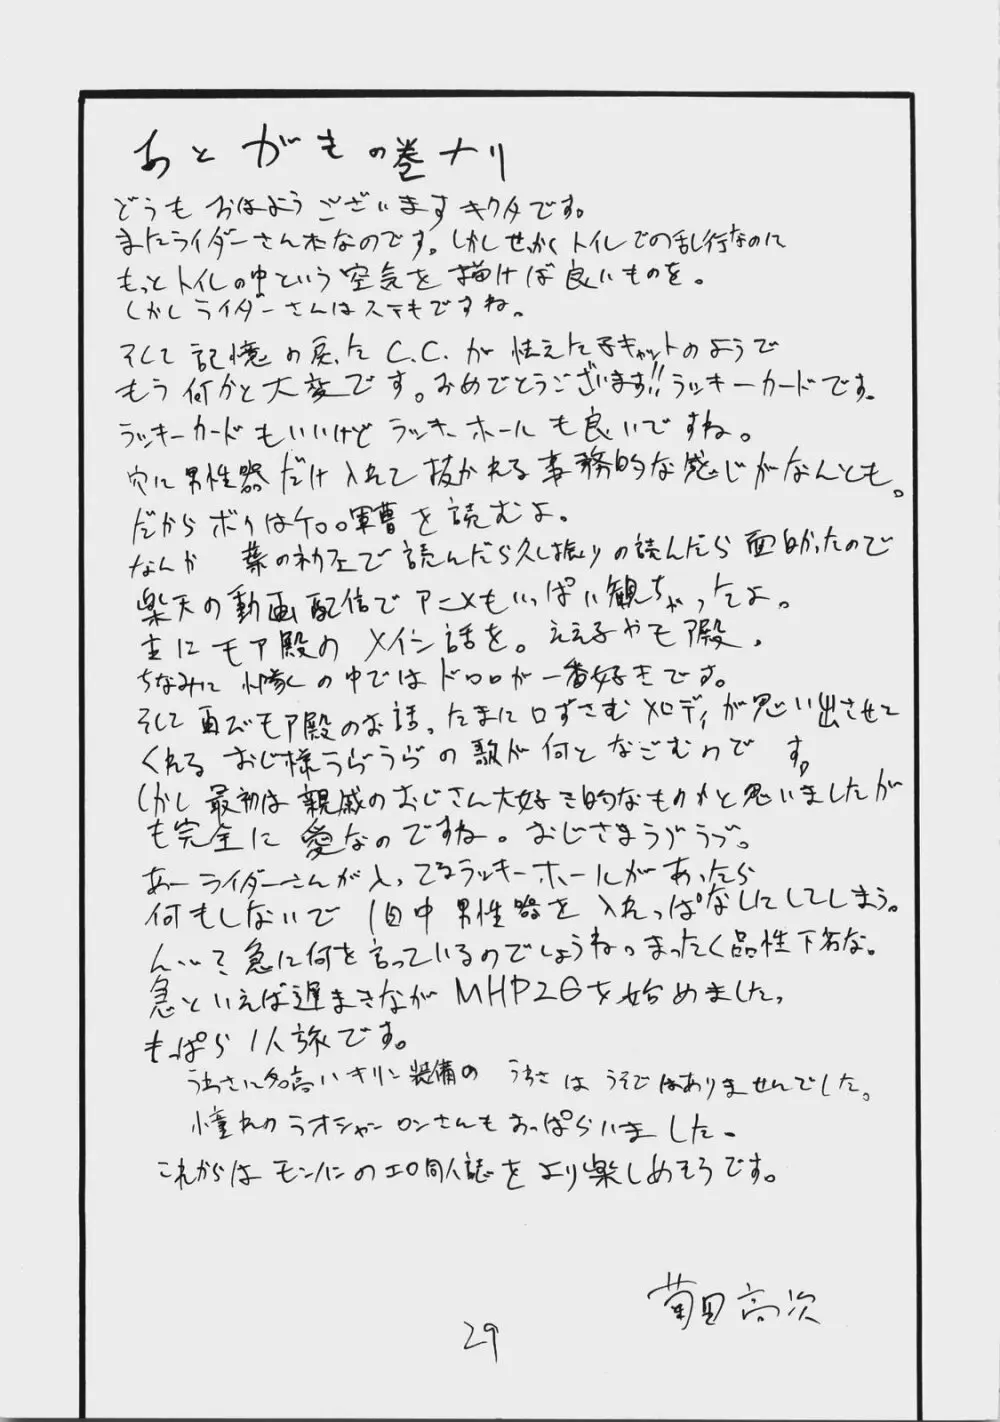 あとがきの巻ナリ
どうもおはようございますキクタです。
またライダーさん本なのです。しかしせっかくトイレでの乱行なのに
もっとトイレの中という空気を描けば良いものを。
しかしライダーさんはステキですね。
そして記憶の戻ったC.C.が怯えた子キャットのようで
もう何かと大変です。おめでとうございます!!ラッキーカードです。
ラッキーカードもいいけどラッキーホールも良いですね。
穴に男性器だけ入れて抜かれる事務的な感じがなんとも。
だからボクはケロロ軍曹を読むよ。
なんか で読んだら久し振りの読んだら面白かったので
楽天の動画配信でアニメもいっぱい観ちゃったよ。
主にモア殿のメイン話を。ええ子やモア殿。
ちなみに小隊の中ではドロロが一番好きです。
そして再びモア殿のお話、たまに口ずさむメロディが思い出させて
くれるおじ様うらうらの歌が何となごむわです。
しかし最初は親戚のおじさん大好き的なものかと思いましたが
も完全に愛なのですね。おじさまうらうら。
あーライダーさんが入ってるラッキーホールがあったら
何もしないで1日中男性器を入れっぱなしにしてしまう。
ん…て急に何を言っているのでしょうね。まったく品性下劣な。
急といえば遅まきながMHP2Gを始めました。
もっぱら1人旅です。
うわさに名高いキリン装備のうわさはうそではありませんでした。
憧れのラオシャンロンさんもおっぱらいました。
これからはモンハンのエロ同人誌をより楽しめそうです。
菊田高次
29